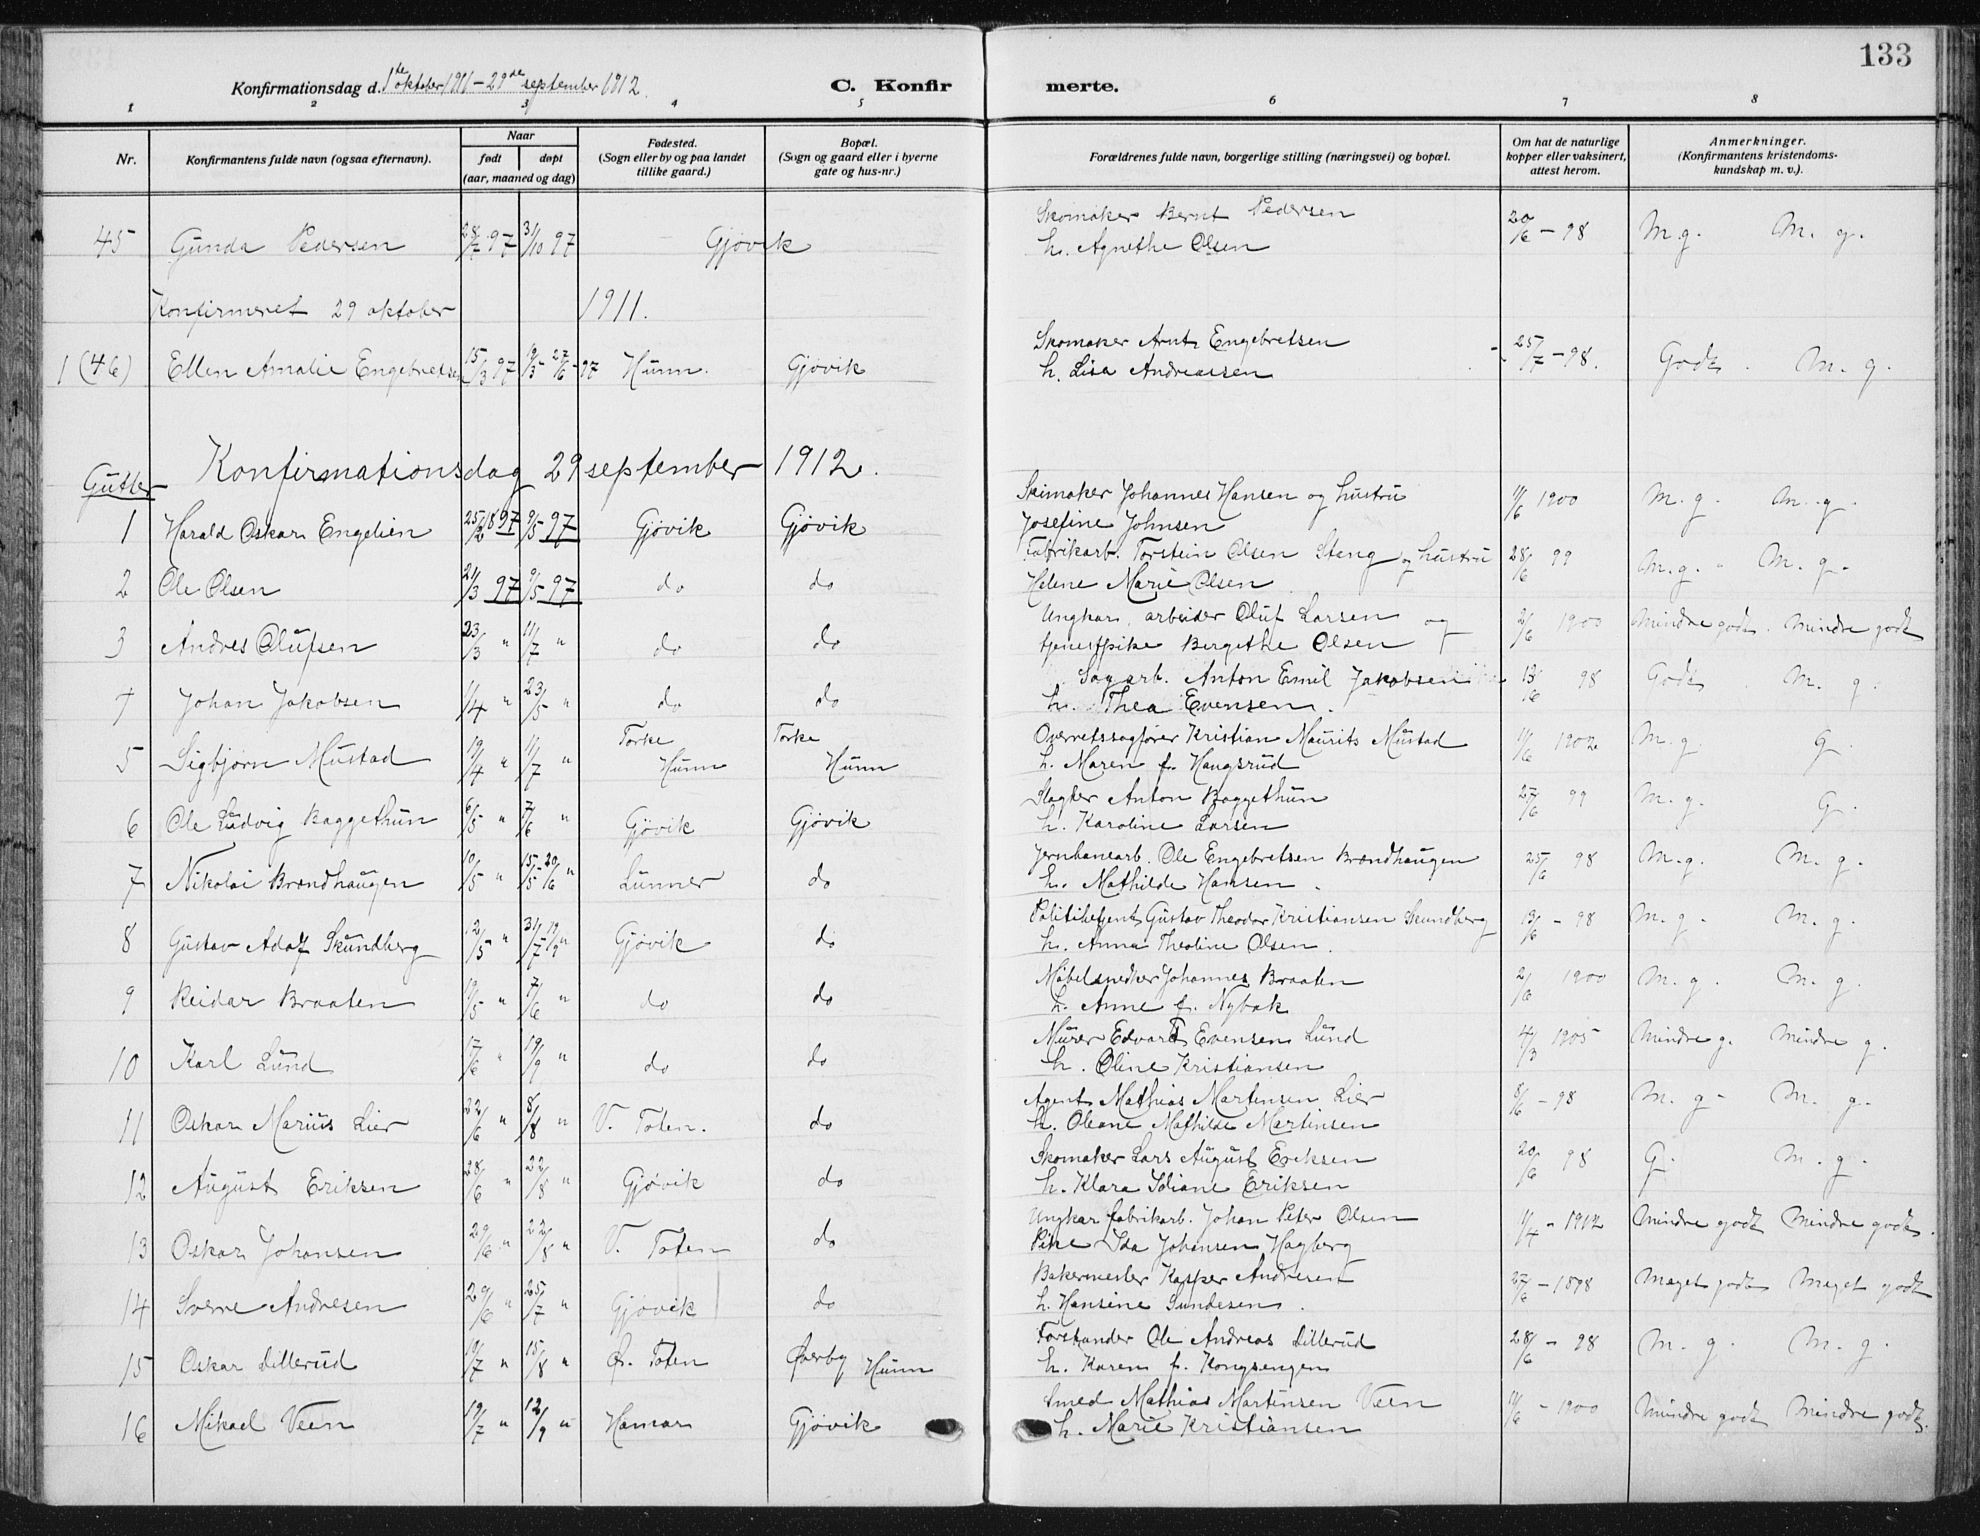 133
Konfirmationsdag d. 1ste oktober 1911 – 29de september 1912. C. Konfirmerte.
1 2 3 4 5 6 7 8
Nr. Konfirmantens fulde navn (ogsaa efternavn). Naar født døpt (aar, maaned og dag) Fødested. (Sogn eller by og paa landet tillike gaard.) Bopæl. (Sogn og gaard eller i byerne gate og hus-nr.) Forældrenes fulde navn, borgerlige stilling (næringsvei) og bopæl. Om hat de naturlige kopper eller vaksinert, attest herom. Anmerkninger. (Konfirmantens kristendoms-kundskap m. v.).
45 Gunda Pedersen 28/7 97 31/10 97 Gjøvik Skomaker Bernt Pedersen h. Agnethe Olsen 20/6 – 98 M. g. M. g.
Konfirmeret 29 oktober 1911.
1 (46) Ellen Amalie Engebretsen 15/3 97 19/5 – 27/6 – 97 Hunn. Gjøvik Skomaker Arnt Engebretsen h. Lisa Andreassen 25/7 – 98. Godt. M. g.
Konfirmationsdag 29 september 1912.
Gutter
1 Harald Oskar Engelien 25/2 1897 9/5 97 Gjøvik Gjøvik Skimaker Johannes Hansen og hustru Josefine Johnsen 11/6 1900 M. g. M. g.
2 Ole Olsen 21/3 97 9/5 97 do do Fabrikarb. Torstein Olsen Steng og hustru Helene Marie Olsen 28/6 99 M. g. M. g.
3 Andres Olufsen 23/3 " 11/7 " do do Ungkar, arbeider Oluf Larsen og tjenestpike Bergethe Olsen 2/6 1900 Mindre godt. Mindre godt
4 Johan Jakobsen 1/4 " 23/5 " do do Sagarb. Anton Emil Jakobsen h. Thea Evensen. 13/6 98 Godt M. g.
5 Sigbjørn Mustad 19/4 " 11/7 " Torke Hunn Torke Hunn Overretssagfører Kristian Maurits Mustad h. Maren f. Haugsrud 11/6 1902 M. g. G.
6 Ole Ludvig Baggethun 6/5 " 7/6 " Gjøvik Gjøvik Slagter Anton Baggethun h. Karoline Larsen 27/6 99 M. g. G.
7 Nikolai Brændhaugen 10/5 " 15/5 – 20/6 " Lunner do Jernbanearb. Ole Engebretsen Brændhaugen h. Mathilde Hansen. 25/6 98 M. g. M. g.
8 Gustav Adolf Skundberg 12/5 " 31/7 19/9 " Gjøvik do Politibetjent Gustav Theodor Kristiansen Skundberg h. Anna Theoline Olsen. 13/6 – 98 M. g. M. g.
9 Reidar Braaten 19/5 " 7/6 " do do Møbelsnedker Johannes Braaten h. Anne f. Nybak 2/6 1900 M. g. M. g.
10 Karl Lund 17/6 " 19/9 " do do Murer Edvard Evensen Lund h. Oline Kristiansen 4/3 1905 Mindre g. Mindre g.
11 Oskar Marius Lier 22/6 " 8/8 " V. Toten. do Agent Mathias Martinsen Lier h. Oleane Mathilde Martinsen 8/6 – 98 M. g. M. g.
12 August Eriksen 28/6 " 22/8 " Gjøvik do Skomaker Lars August Eriksen h. Klara Idiane Eriksen 20/6 98 G. M. g.
13 Oskar Johansen 29/6 " 22/8 " V. Toten do Ungkar fabrikarb. Johan Peter Olsen Pike Ida Johansen Hagberg 11/4 – 1912 Mindre godt Mindre godt.
14 Sverre Andresen 29/6 " 25/7 " Gjøvik do Bakermester Kasper Andresen h. Hansine Sundesen. 27/6 – 1898 Meget godt Meget godt
15 Oskar Lillerud 10/7 " 15/8 " Ø. Toten Øverby Hunn Forstander Ole Andreas Lillerud h. Karen f. Kongsengen 28/6 – 98 M. g. M. g.
16 Mikael Veen 19/7 " 12/9 " Hamar Gjøvik Smed Mathias Martinsen Veen h. Marie Kristiansen 11/6 – 1900 Mindre godt Mindre godt.